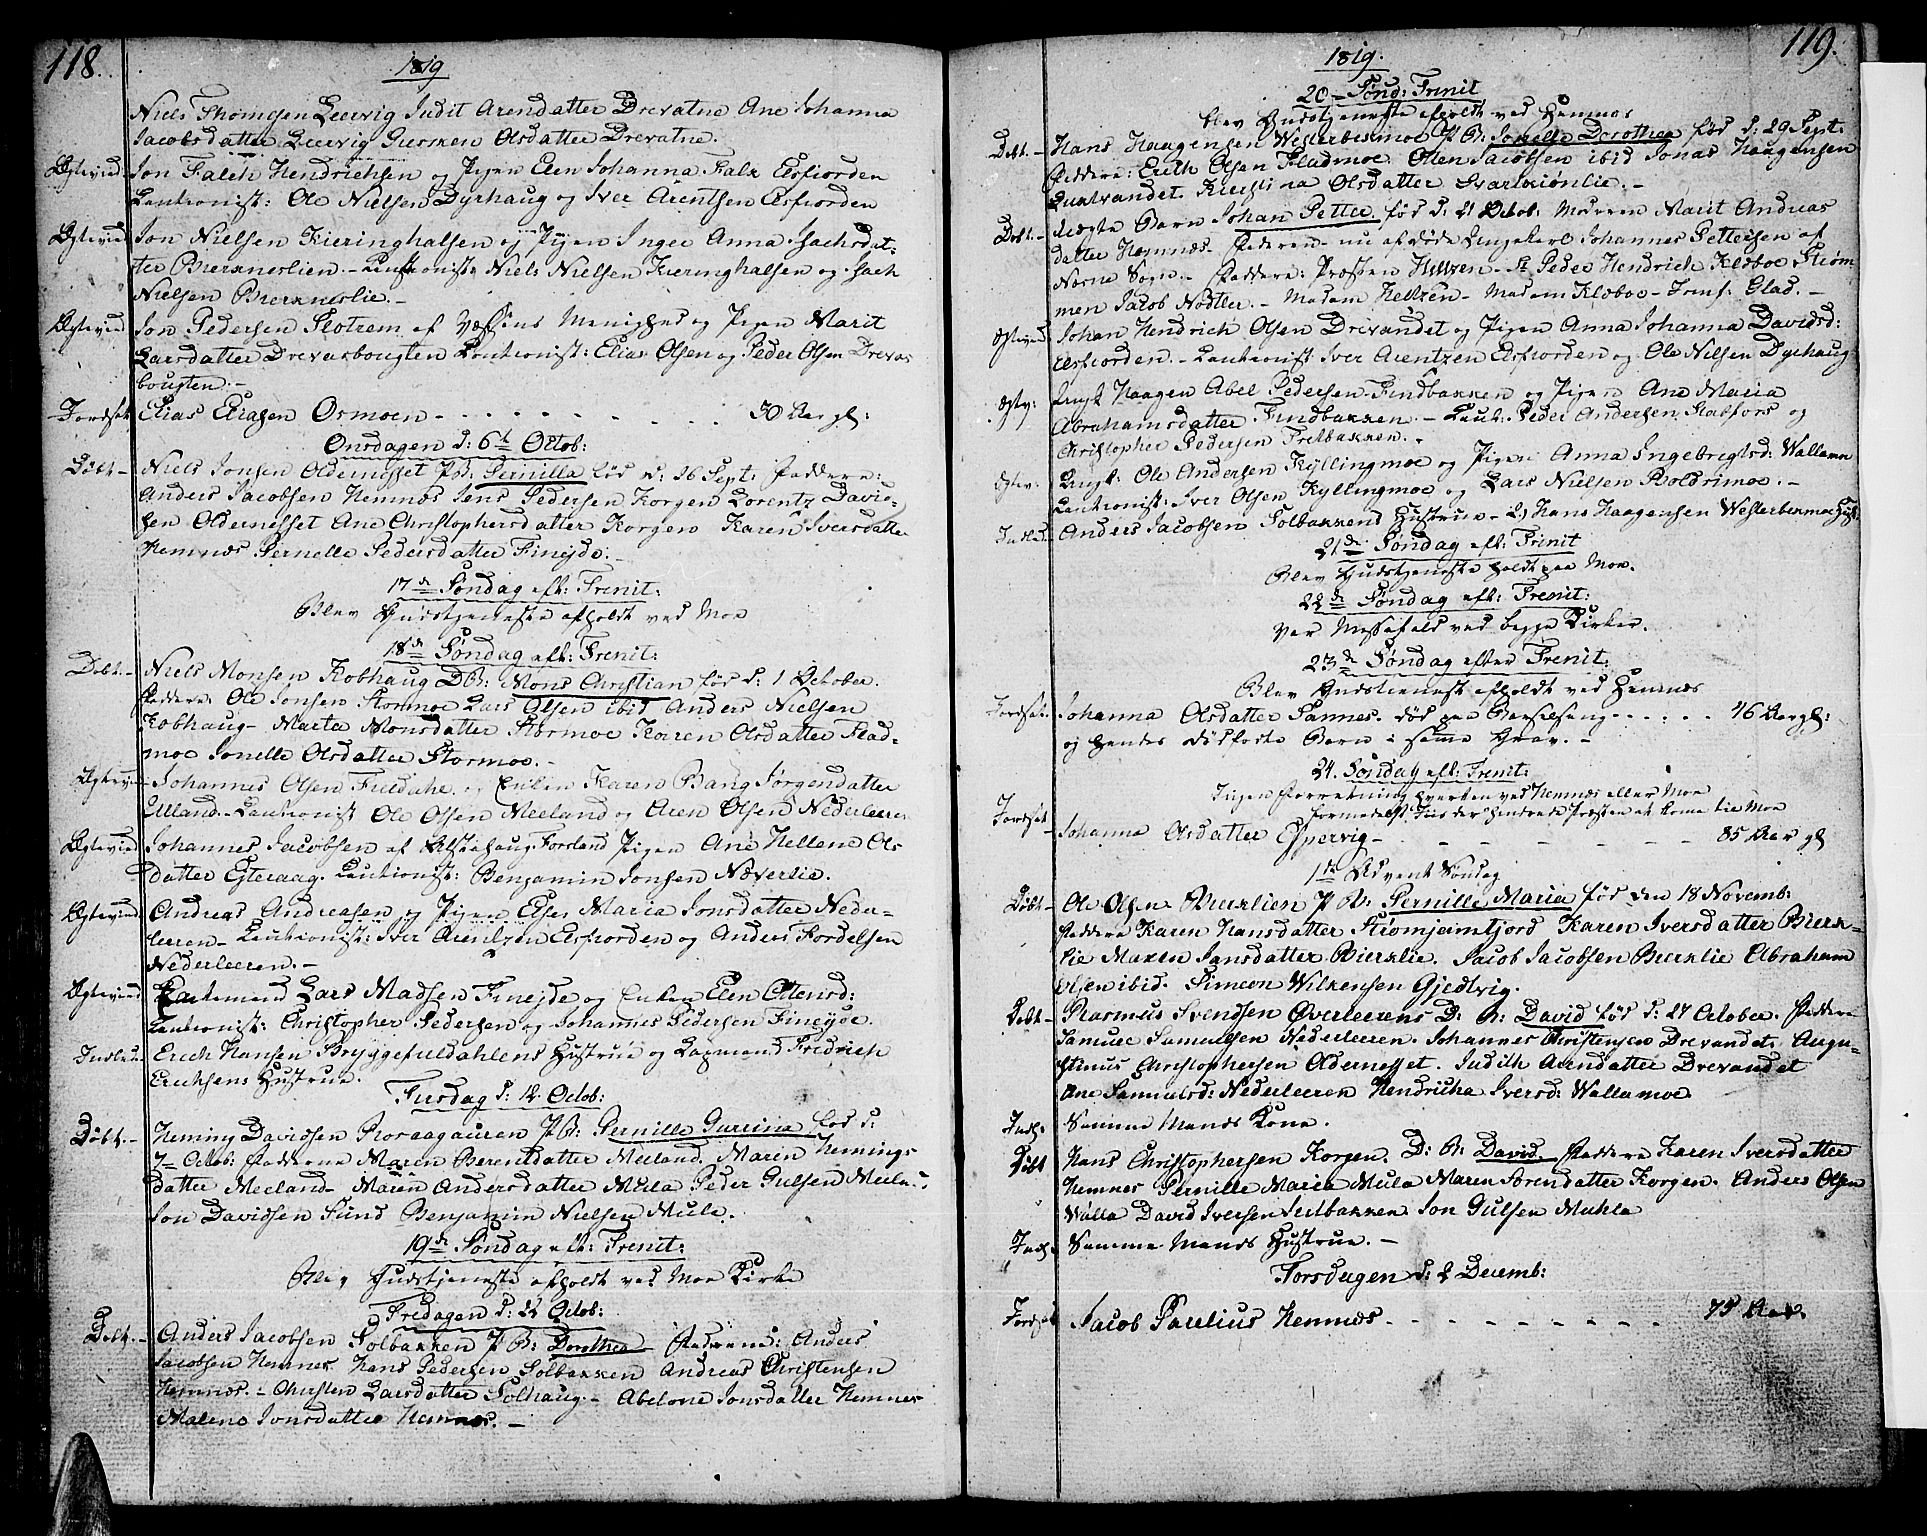 118.
1819
Niels Thomesen Leervig Judit Arendatter Drevatne Ane Johanna
Jacobsdatter Leervig Gurmen Olsdatter Drevatne.
Egtevied Jon Falch Hendrichsen og Pigen Elen Johanna Falk Elsfiorden
Cautionist: Ole Nielsen Dyrhaug og Iver Arentsen Elsfiorden
Egtevied Jon Nielsen Kieringhalsen og Pigen Inger Anna Isachsdat-
ter Bierknerlien. – Cautionist: Niels Nielsen Kieringhalsen og Isach
Nielsen Bierknerlie. –
Egtevied Jon Pedersen Slotrem af Vefsens Menighed og Pigen Marit
Larsdatter Drevasbougten Cautionist: Elias Olsen og Peder Olsen Drevas
bougten. –
Jordsat Elias Eliasen Ormoen 50 Aar gl:
Onsdagen d: 6t Octob:
Døbt – Niels Jonsen Oldernesset P B: Pernilla fød d: 26 Sept: Faddere:
Anders Jacobsen Hemnæs Jens Pedersen Korgen Lorentz David-
sen Oldernesset Ane Christophersdatter Korgen Karen Iversdatter
Hemnæs Pernelle Pedersdatter Finejde. –
17de Søndag eft: Trenit:
Blev Gudstjeneste afholdt ved Moe
18de Søndag eft: Trenit:
Døbt. – Niels Monsen Kobhaug D B: Mons Christian fød d: 1 October.
Faddere Ole Jonsen Stormoe Lars Olsen ibid Anders Nielsen
Kobhaug – Marte Monsdatter Stormoe Karen Olsdatter Flad-
moe Jonelle Olsdatter Stormoe. –
Egtevied Johannes Olsen Fieldahl og Enken Karen Bang Jørgendatter
Ulland. – Cautionist Ole Olsen Meeland og Aren Olsen Nederleeren
Egtevied Johannes Jacobsen af Alstahaug Forsland Pigen Ane Hellene Ols
datter Ejteraag. Cautionist: Benjamin Jonsen Næverlie.
Egtevied Andreas Andreasen og Pigen Elses Maria Jonsdatter Neder-
leeren – Cautionist: Iver Arentzen Elsfiorden og Anders Fordelsen
Nederleeren. –
Egtevied Enkemand Lars Madsen Finejde og Enken Elen Ottersd:
Cautionist: Christopher Pedersen og Johannes Pedersen Finejde.
Indled: Erich Hansen Bryggefieldahlens Hustrue og Lagmand Fredrich
Erichsens Hustrue.
Tirsdag d: 12 Octob:
Døbt. – Heming Davidsen Roraagauren P B: Pernille Gureina fød d:
7de Octob: Fadderne Maren Berentdatter Meeland Maren Hemings
datter Meeland – Maren Andersdatter Mula Peder Gulsen Mula
Jon Davidsen Sund Benjamin Nielsen Mula.
19de Søndag eft: Trenit:
Blev Gudstjeneste afholdt ved Moe Kirke
Fredagen d: 22 Octob:
Døbt. – Anders Jacobsen Solbakken P B: Dorothea Fadderne: Anders
Jacobsen Hemnes Hans Pedersen Solbakken Andreas Christensen
Hemnæs. – Chirsten Larsdatter Solhaug – Abelone Jonsdatter Hemnes
Malene Jonsdatter Hemnes. –
119.
1819.
20 – Sønd: Trenit
Blev Gudstjeneste afholdt ved Hemnæs
Døbt. – Hans Haagensen Westerbesmoe P B: Jonelle Dorothea fød d: 29 Sept:
Faddere: Erich Olsen Fladmoe Olen Jacobsen ibid Jonas Haagensen
Luktvandet Kirstina Olsdatter Svartkiønlie. –
Døbt. – Uægte Barn Johan Petter fød d: 21 Octob: Moderen Marit Andreas
datter Hemnæs. Faderen nu afdøde Ungekarl Johannes Pettersen af
Nærne Sogn. – Faddere: Præsten Heltzen – Peder Hendrich Kloboe Strøm
men Jacob Nødtler – Madam Heltzen – Madam Kloboe – Jomf: Glad. –
Egtevied Johan Hendrich Olsen Drevandet og Pigen Anna Johanna Davidsd:
Elsfiorden. – Cautionist Iver Arentzen Elsfiorden og Ole Nielsen Dyrhaug
Egtev: Ungk Haagen Abel Pedersen Findbakken og Pigen Ane Maria
Abrahamsdatter Findbakken. – Caut: Peder Andersen Stalfors og
Christopher Pedersen Fretbakken. –
Egtev: Ungk: Ole Andersen Kyllingmoe og Pigen Anna Ingebregtsd: Wallamoe
Cautionist: Iver Olsen Kyllingmoe og Lars Nielsen Boldrimoe. –
Indled: Anders Jacobsen Solbakkens Hustrue – 2) Hans Haagensen Westerbesmoe Hust:
21de Søndag eft: Trenit
Blev Gudstjeneste holdt paa Moe.
22de Søndag eft: Trenit:
Var Messefald ved begge Kirker.
23de Søndag efter Trenit:
Blev Gudstieneste afholdt ved Hemnæs
Jordsat. Johanna Olsdatter Sannes. død paa Barselseng 46 Aar gl:
og hendes dødfødte Barn i samme Grav. –
24. Søndag eft: Trenit:
Ingen Forretning hverken ved Hemnæs eller Moe
formedelst Iis der hindrede Præsten at komme til Moe
Jordsat Johanna Olsdatter Espervig 85 Aar gl
1ste Advent Søndag
Døbt – Ole Olsen Bierklien P B: Pernille Maria fød den 18 Novemb:
Faddere Karen Hansdatter Strømjeimfjord Karen Iversdatter Bierk-
lie Maren Jansdatter Bierklie. Jacob Jacobsen Bierklie Abraham
Olsen ibid. Simeon Wilkensen Gjedtvig.
Døbt – Rasmus Svendsen Øverleerens D: B: David fød d: 27 October. Faddere
Samuel Samulsen Nederleeren. Johannes Christensen Drevandet. Augu-
stinus Christophersen Oldernesset. Judith Arendatter Drevandet
Ane Samuelsd: Nederleeren Hendricha Iversd: Wallamoe
Indl. Samme Mands Kone.
Døbt Hans Christophersen Korgen. D: B: David. Faddere Karen Iversdatter
Hemnes Pernille Maria Mula Maren Sørendatter Korgen. Anders Olsen
Walla David Iversen Leilbakken Jon Gulsen Muhla
Indl. Samme Mands Hustrue. –
Torsdagen d: 2 Decemb:
Jordsat Jacob Parelius Hemnæs 75 Aar.